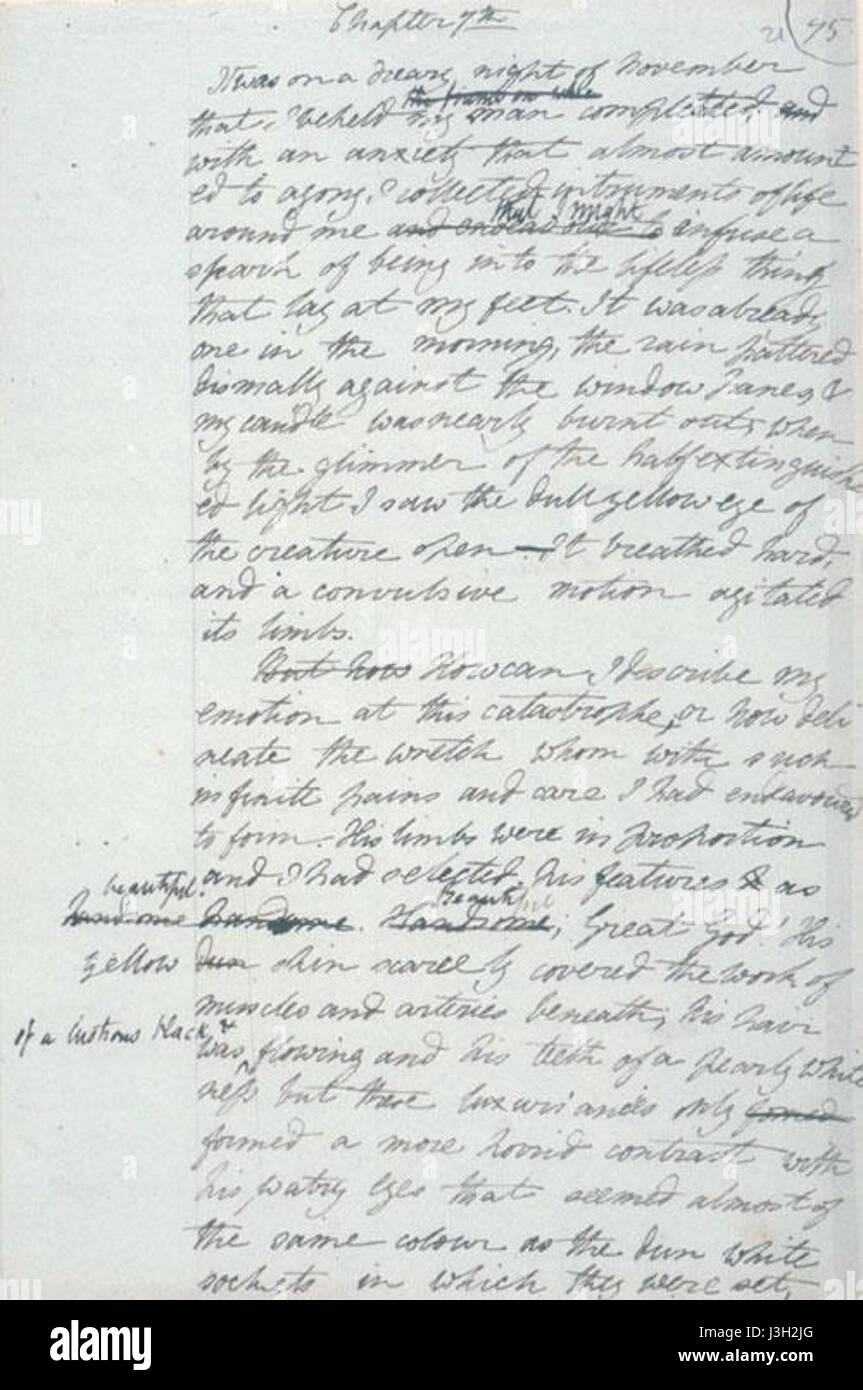 Chapter 7th
21 95
It was on a dreary night of November
the frame on whic
that I beheld my man completed, and
with an anxiety that almost amount
ed to agony, I collected instruments of life
that I might
around me and endeavour to infuse a
spark of being into the lifeless thing
that lay at my feet. It was already
one in the morning, the rain pattered
dismally against the window panes, &
my candle was nearly burnt out, when
by the glimmer of the half extinguish
ed light I saw the dull yellow eye of
the creature open — It breathed hard,
and a convulsive motion agitated
its limbs.
But how How can I describe my
emotion at this catastrophe, or how deli
neate the wretch whom with such
infinite pains and care I had endeavoured
to form. His limbs were in proportion
and I had selected his features & as
beautiful.
Beautiful
handsome handsome. Handsome; Great God! His
yellow dun skin scarcely covered the work of
muscles and arteries beneath; his hair
of a lustrous black, &
was flowing and his teeth of a pearly white
ness but these luxuriancies only formed
formed a more horrid contrast with
his watry eyes that seemed almost of
the same colour as the dun white
sockets in which they were set,
alamy stock photo
H3J2JG
www.alamy.com